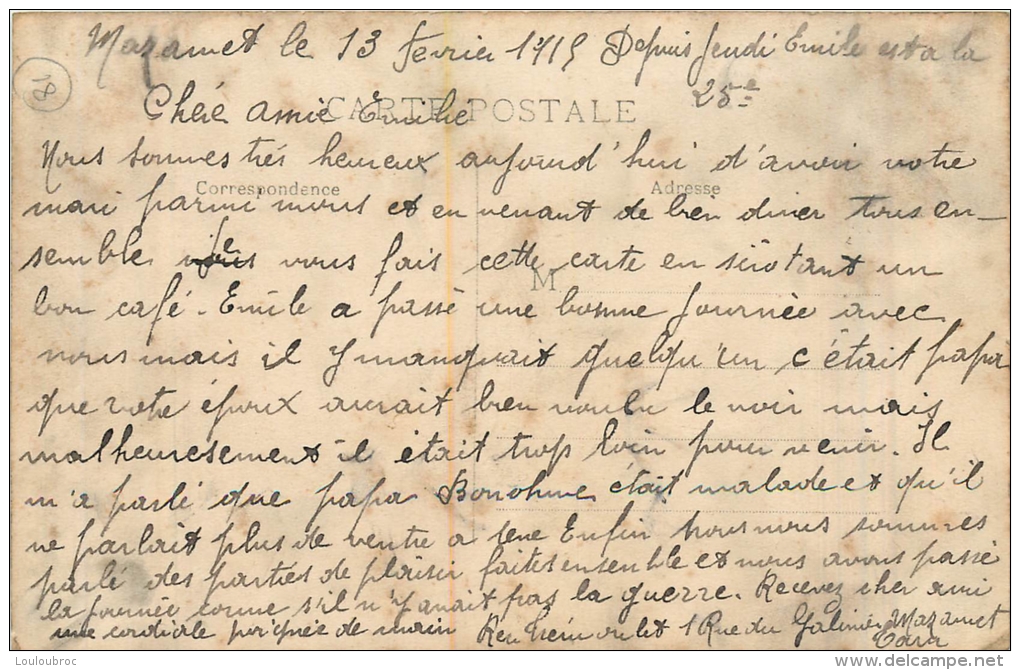 Mazamet le 13 fevrier 1915 Depuis Jeudi Emile est a la
25e
18
CARTE POSTALE
Chére amie Emilie
Nous sommes trés heureux aujourd'hui d'avoir votre
Correspondence Adresse
mari parmi nous et en venant de bien diner tous en-
semble je vous fais cette carte en sirotant un
M
bon café. Emile a passé une bonne Journée avec
nous mais il y manquait quelqu'un c'était papa
que votre époux aurait bien voulu le voir mais
malheuresement il était trop loin pour venir. Il
m'a parlé que papa Bonohme était malade et qu'il
ne parlait plus de ventre a Enfin nous nous sommes
parlé des parties de plaisir faites ensemble et nous avons passé
la Journée comme s'il n'y avait pas la guerre. Recevez cher ami
une cordiale de main 1 Rue du Galinier Mazamet
Tarn
Louloubroc
http://www.delcampe.net